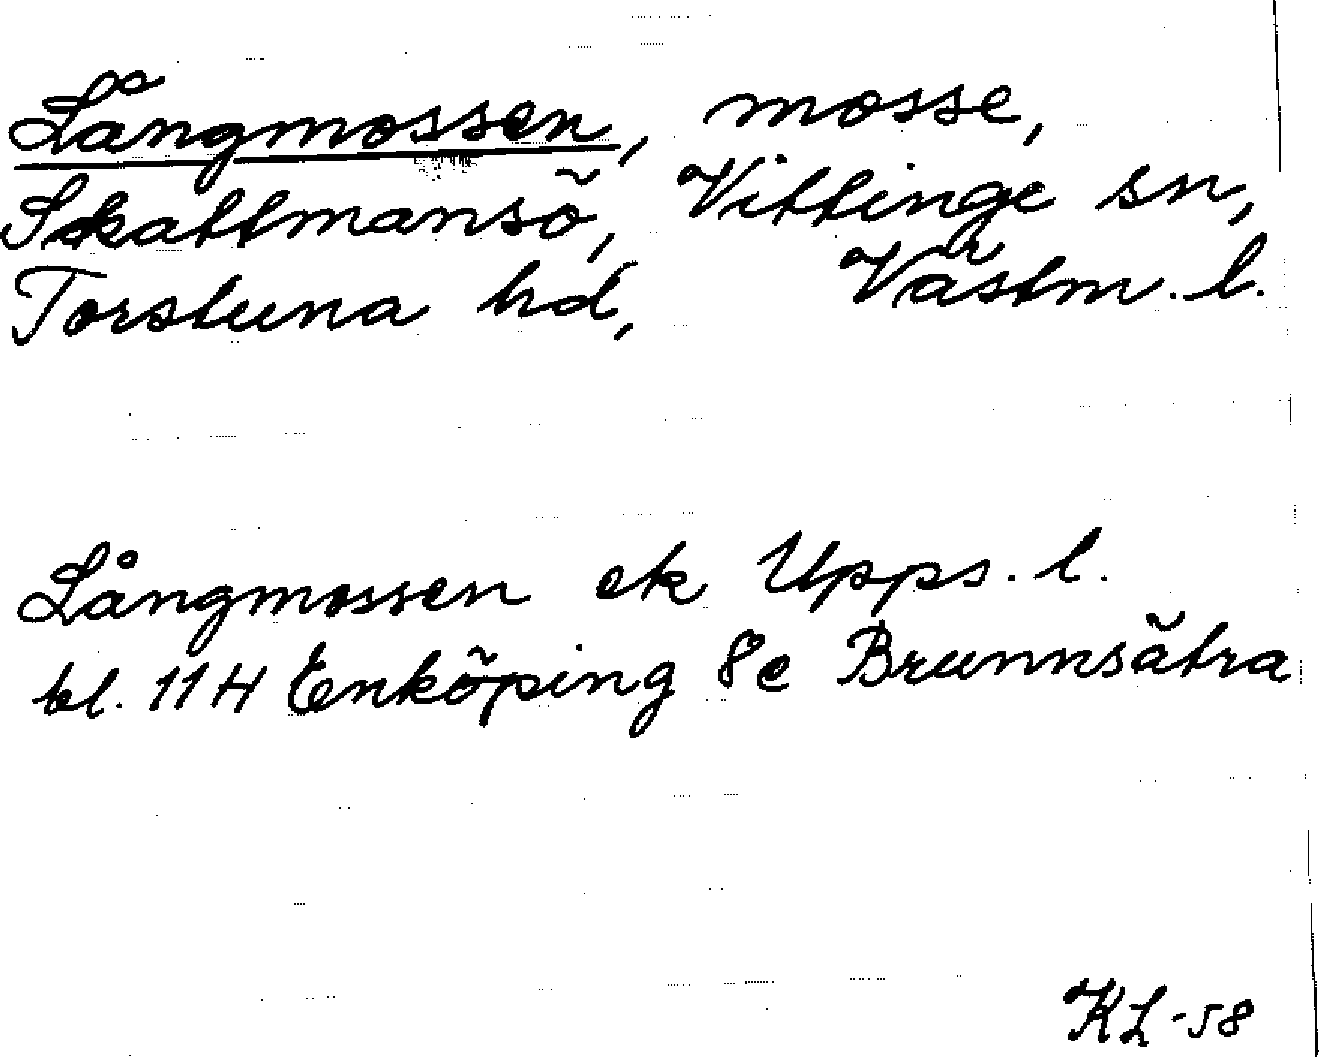 Långmossen, mosse,
Skattmansö, Vittinge sn,
Torstuna hd, Västm. l.
Långmossen ek Upps. l.
bl. 11 H Enköping 8e Brunnsätra
KL -58